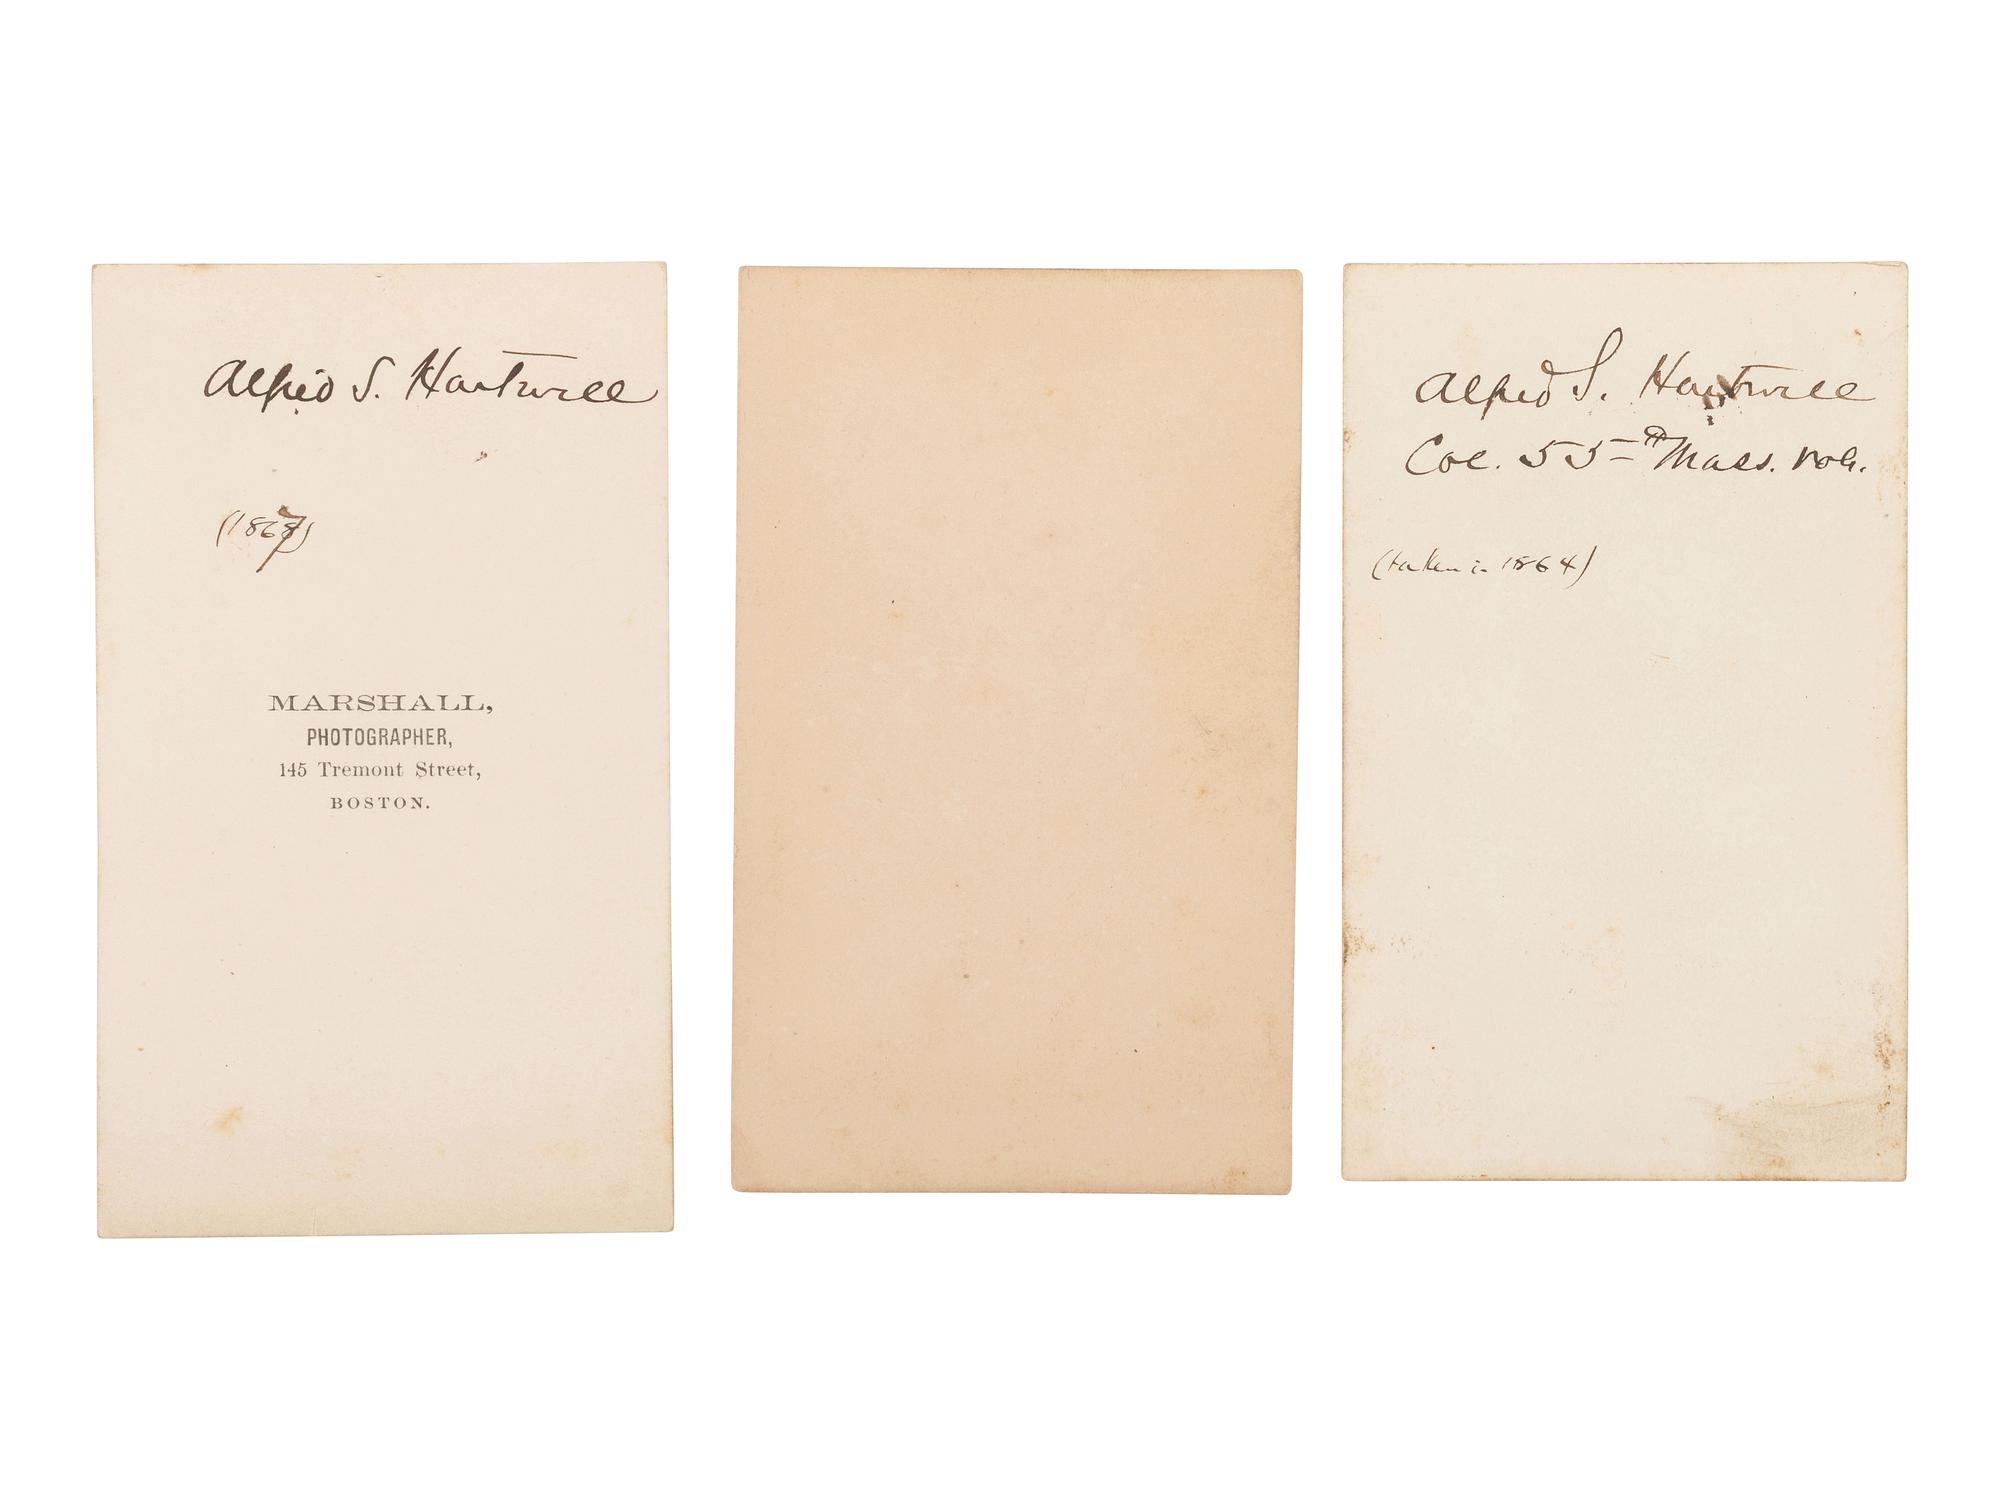 Alfred S. Hartwell
(1867)
MARSHALL,
PHOTOGRAPHER,
145 Tremont Street,
BOSTON.
Alfred S. Hartwell
Col. 55th Mass. Vols.
(taken in 1864)